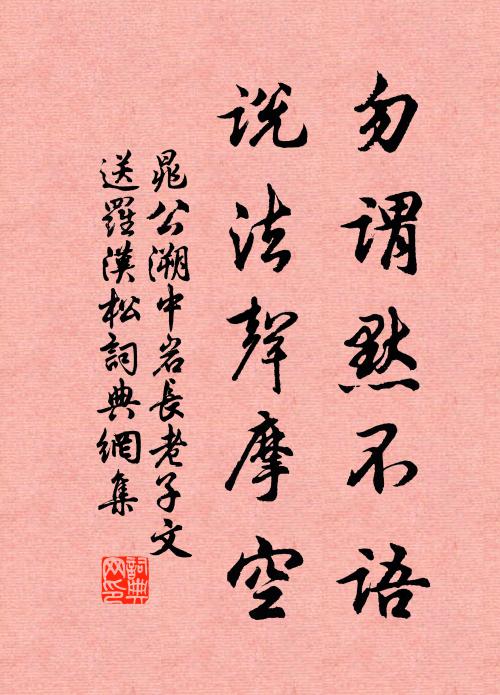 勿谓默不语
说法声摩空
晁公溯中岩長老子文
送羅漢松詞典網集
詞典网印